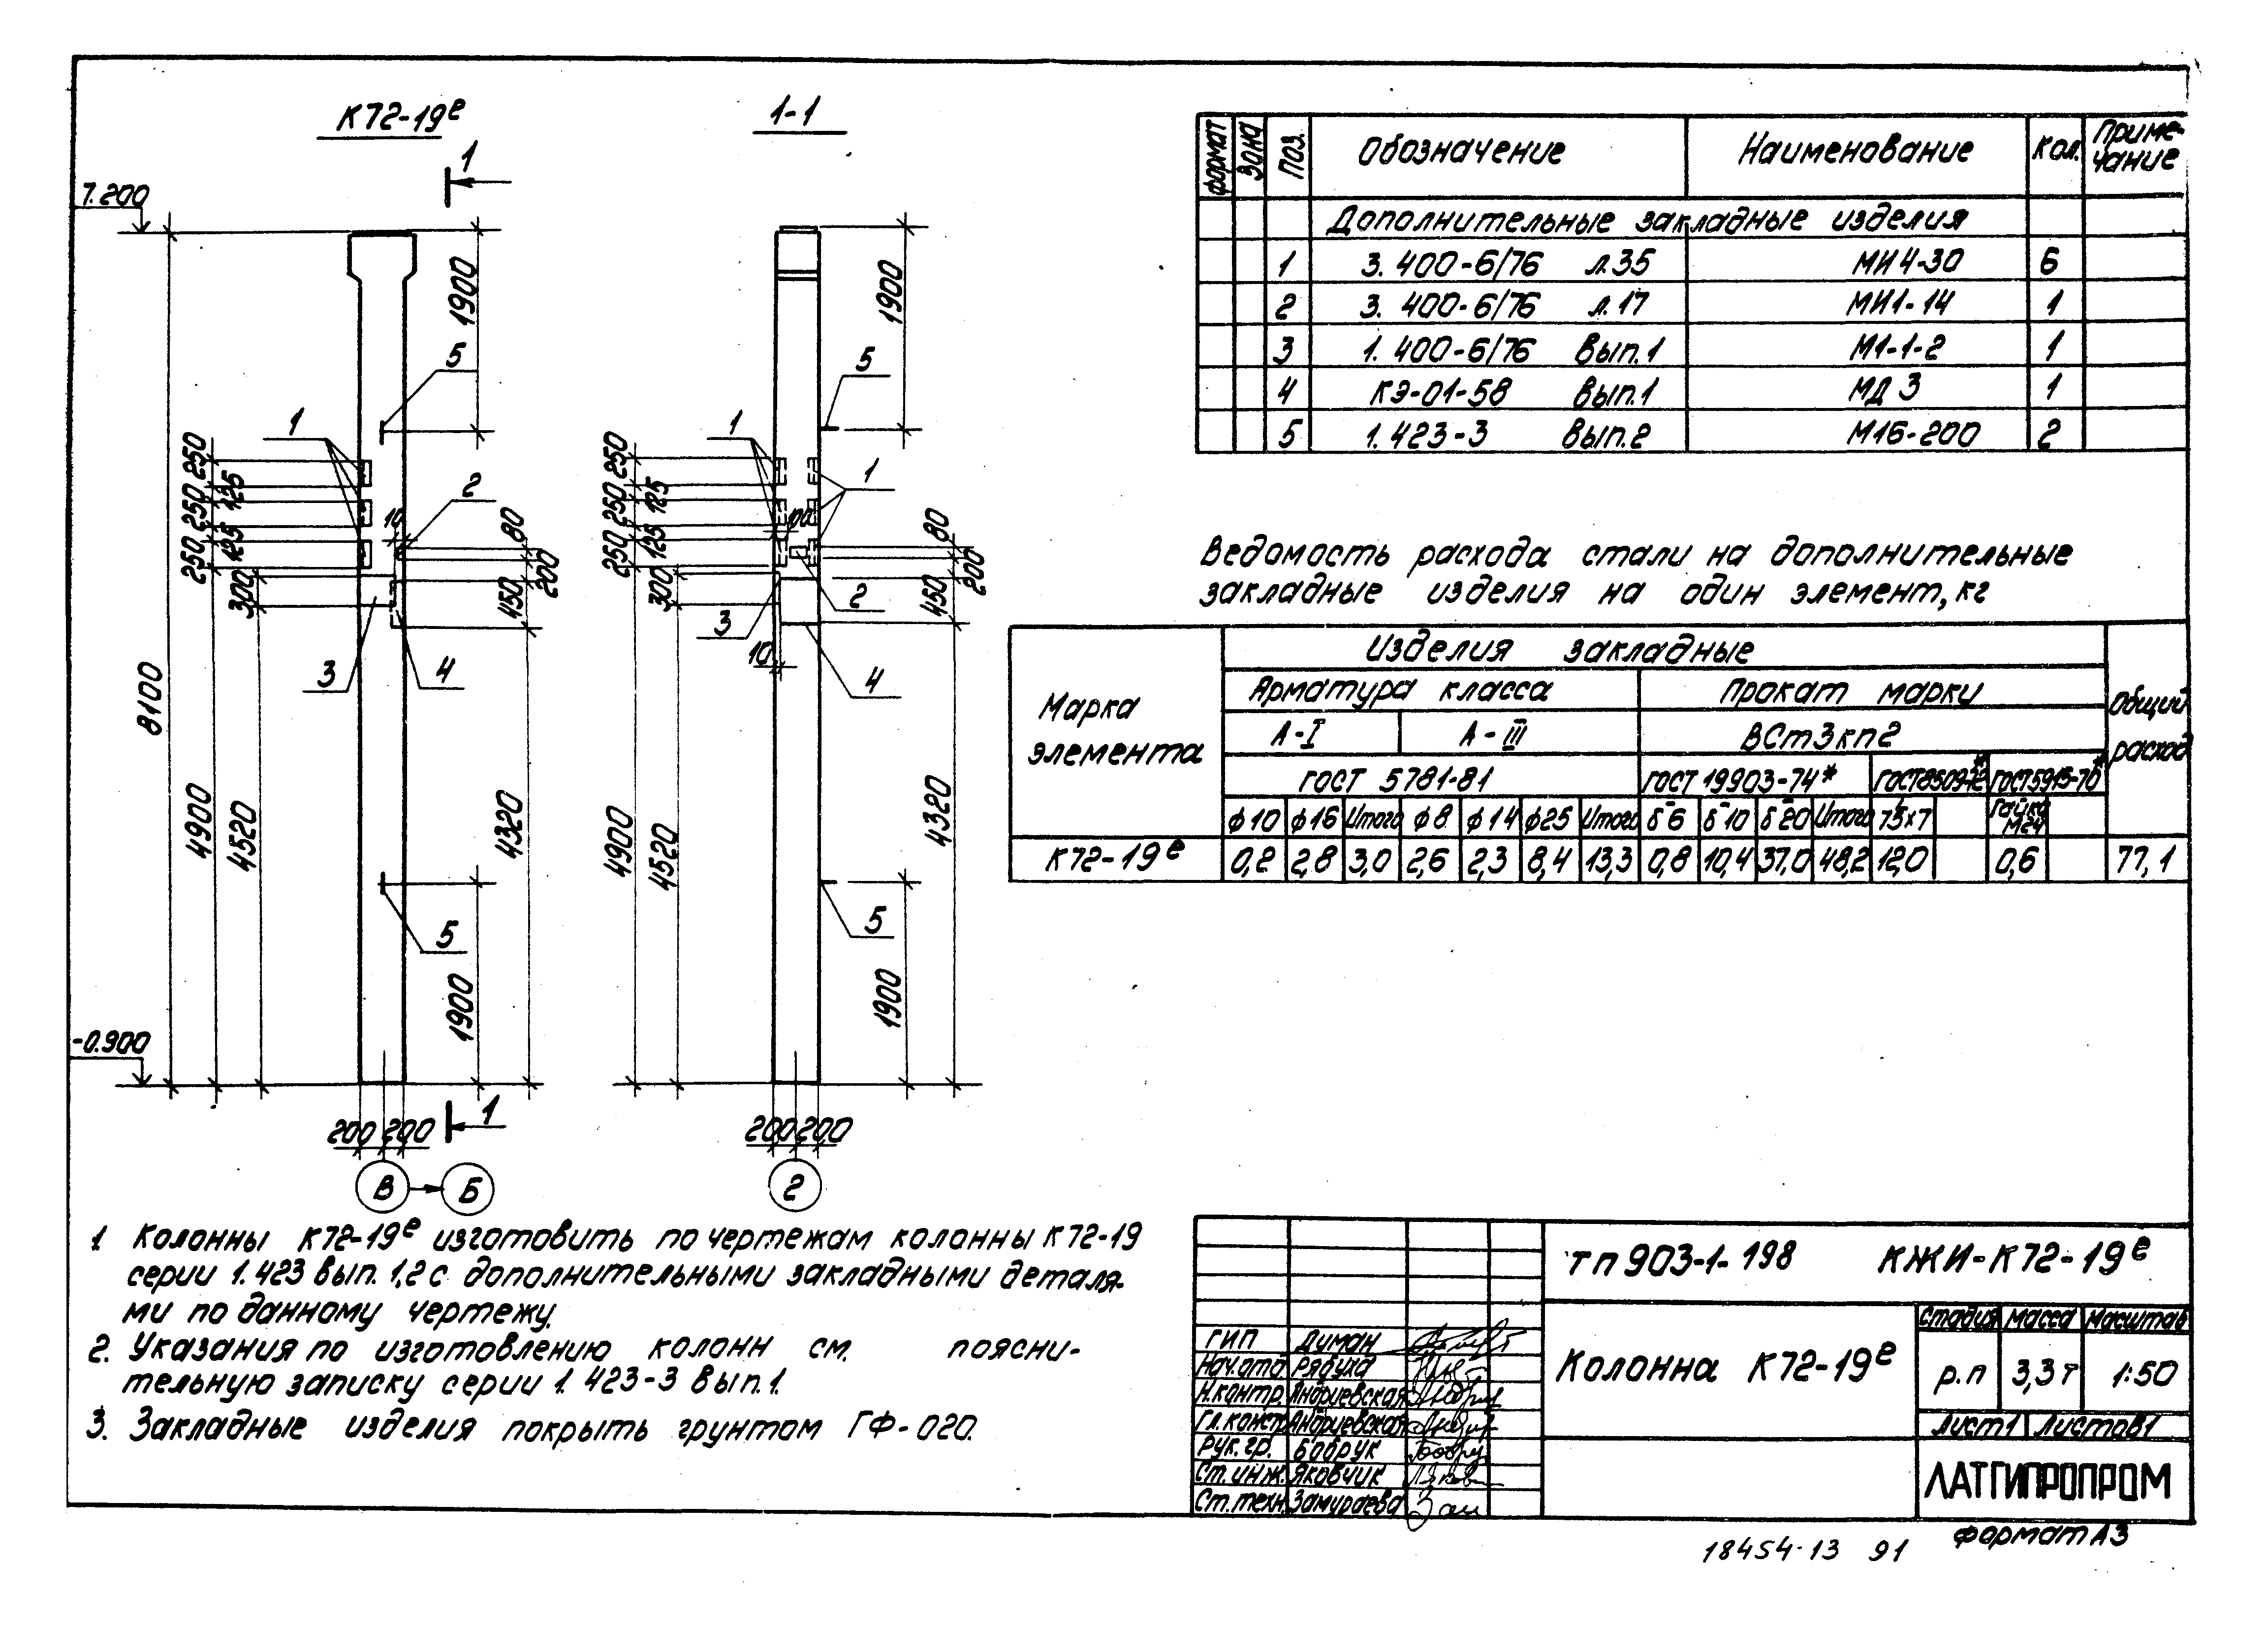 К72-19е
1-1
1
7.200
1900
1900
5
5
1
1
1
2
250
250
250
125
125
10
80
200
450
300
250
250
250
125
125
100
80
200
450
300
2
3
4
3
10
4
8100
4900
4520
4320
4900
4520
4320
5
5
1900
1900
-0.900
200 200
1
200 200
В Б
2
1. Колонны К72-19е изготовить по чертежам колонны К72-19
серии 1.423 вып. 1,2 с дополнительными закладными деталя-
ми по данному чертежу.
2. Указания по изготовлению колонн см. поясни-
тельную записку серии 1.423-3 вып.1.
3. Закладные изделия покрыть грунтом ГФ-020.
формат Зона Поз. Обозначение Наименование Кол. Приме-
чание
Дополнительные закладные изделия
1 3.400-6/76 л.35 МИ4-30 6
2 3.400-6/76 л.17 МИ1-14 1
3 1.400-6/76 вып.1 М1-1-2 1
4 КЭ-01-58 вып.1 МД3 1
5 1.423-3 вып.2 М16-200 2
Ведомость расхода стали на дополнительные
закладные изделия на один элемент, кг
Марка
элемента
Изделия закладные
Общий
расход
Арматура класса Прокат марки
А-I А-III ВСт3кп2
ГОСТ 5781-81 ГОСТ 19903-74* ГОСТ8509-72* ГОСТ5915-70*
ф10 ф16 Итого ф8 ф14 ф25 Итого δ-6 δ-10 δ-20 Итого 75х7 Гайка
М24
К72-19е 0,2 2,8 3,0 2,6 2,3 8,4 13,3 0,8 10,4 37,0 48,2 12,0 0,6 77,1
ТП 903-1-198 КЖИ-К72-19е
Колонна К72-19е
Стадия Масса Масштаб
р.п 3,3 т 1:50
Лист 1 Листов 1
ГИП Думан
Нач.отд Рябуха
Н.контр. Андриевская
Гл.констр Андриевская
Рук.гр. Бобрук
Ст.инж. Яковчик
Ст.техн. Замураева
ЛАТГИПРОПРОМ
формат А3
18454-13 91